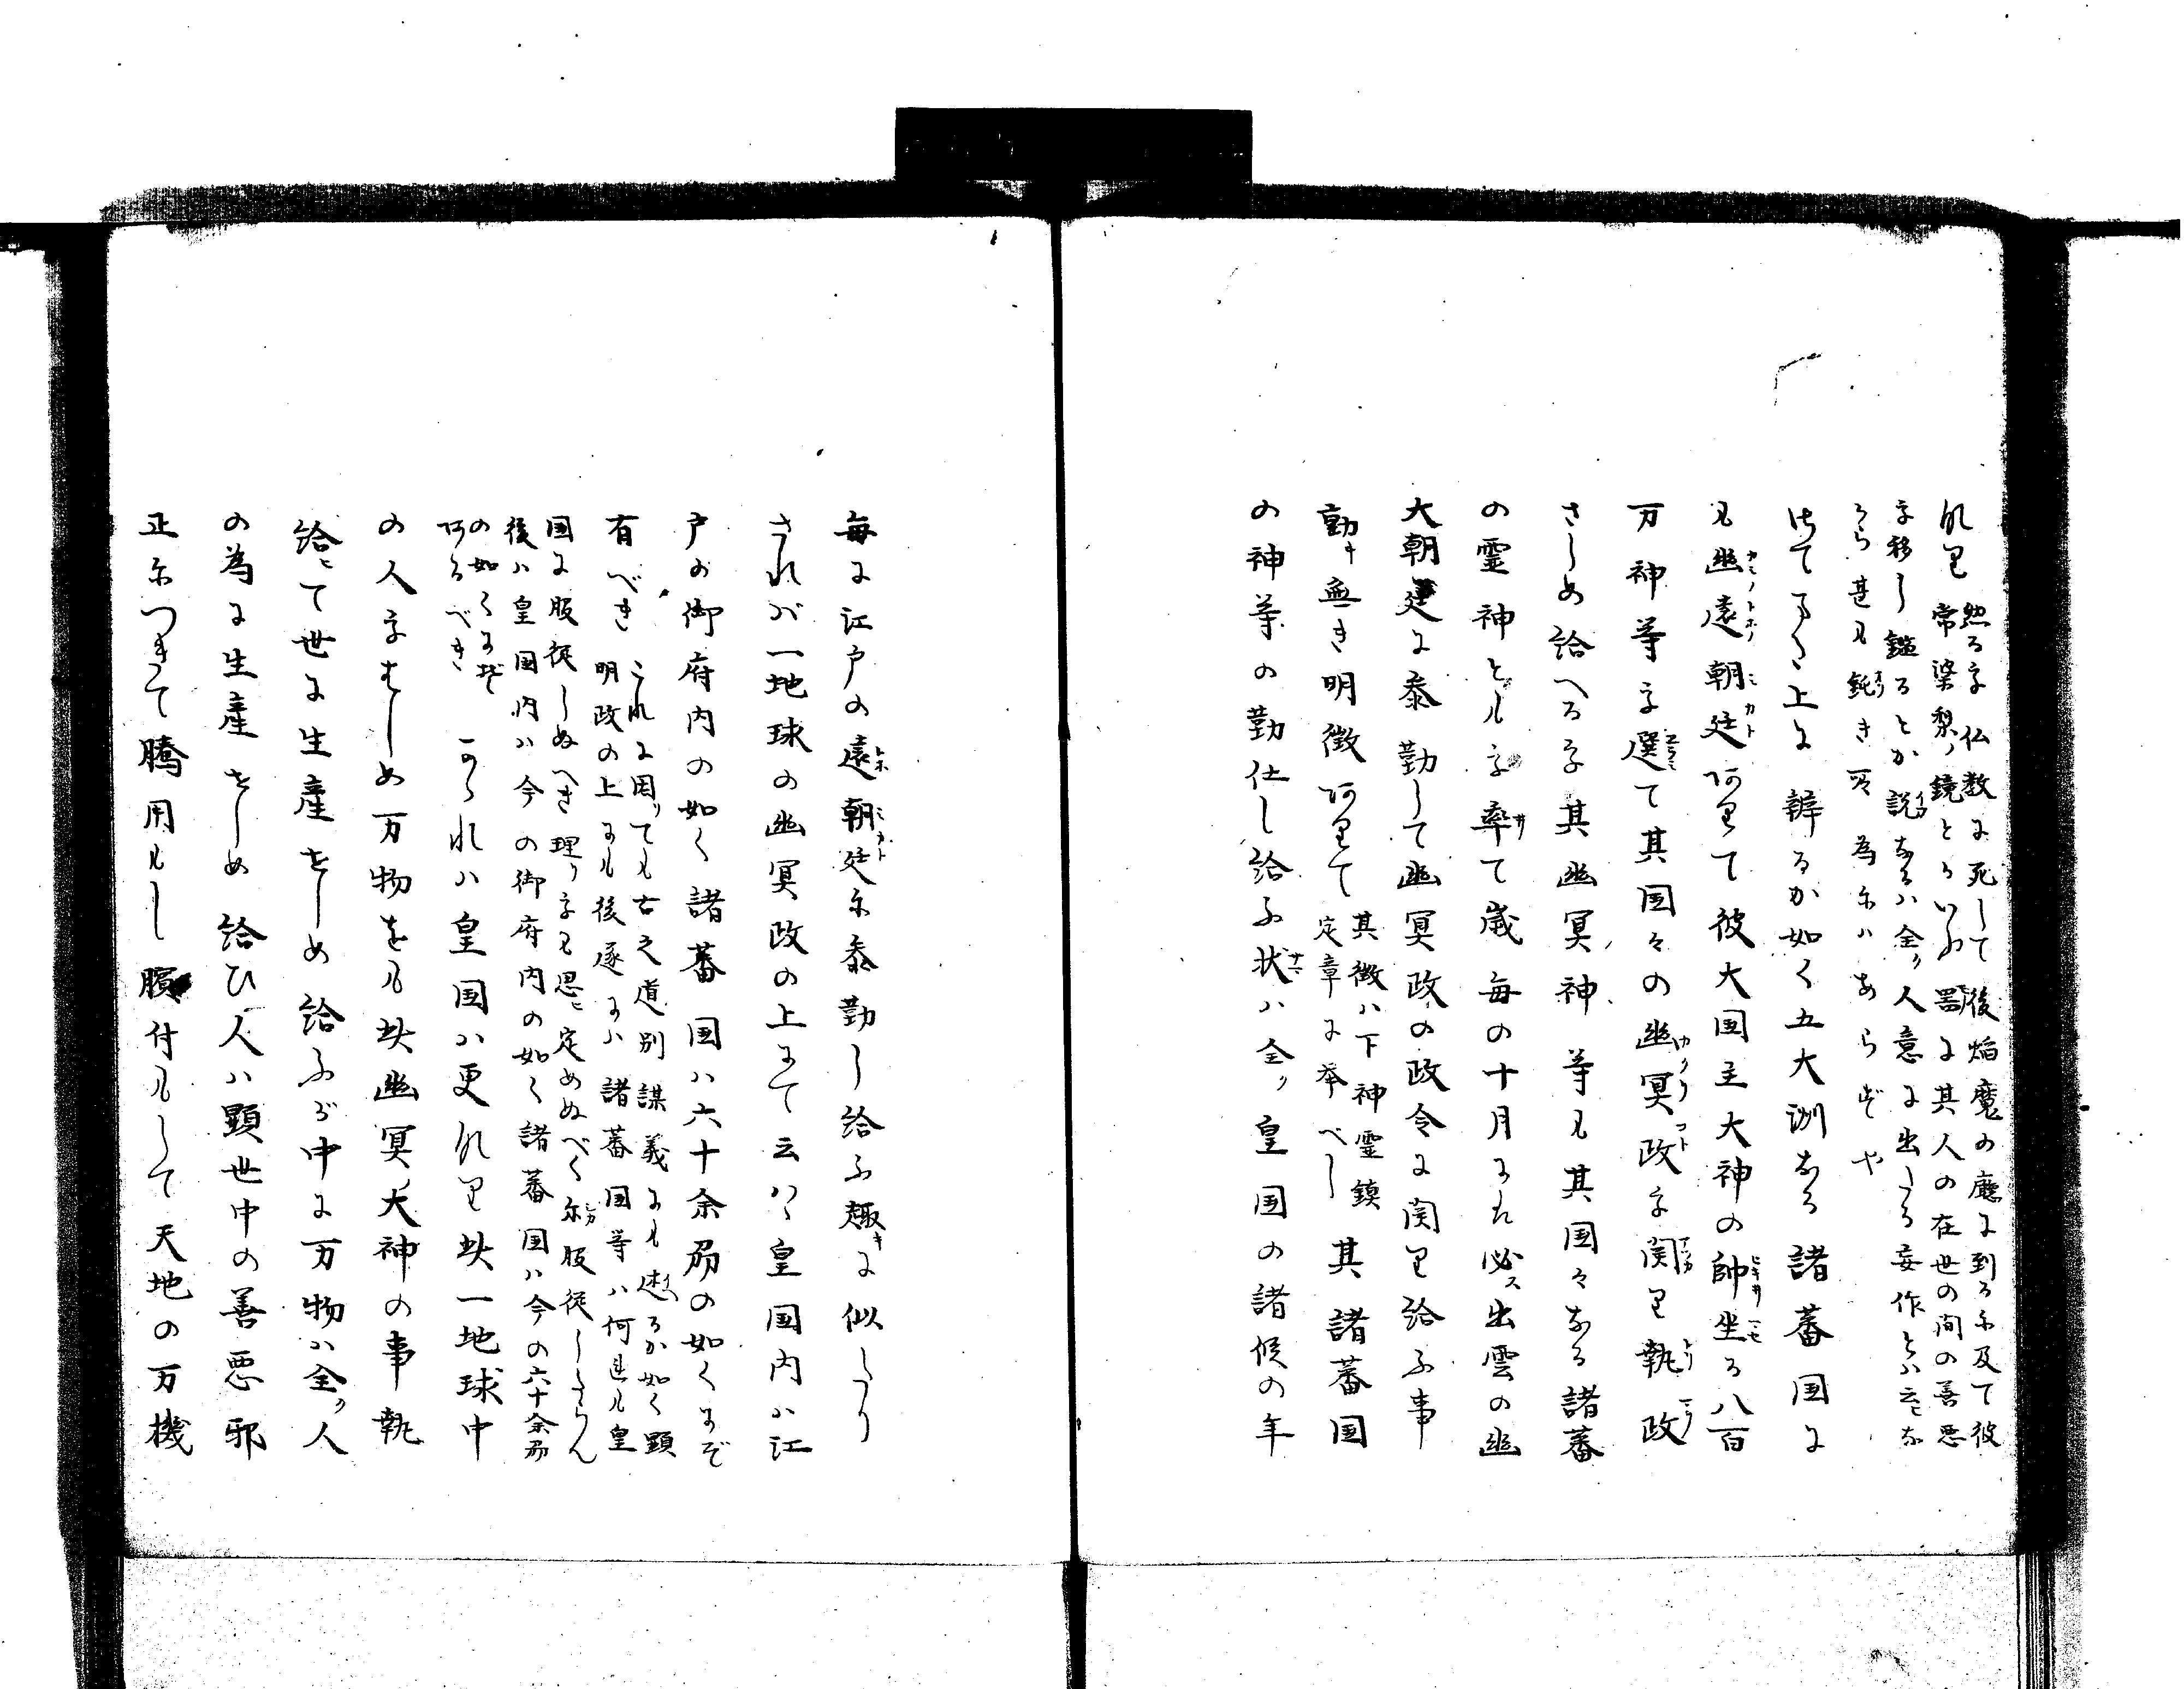 れり 然るを仏教に死して後焔魔の庁に到るに及て彼
常婆梨ノ鏡とかいふ器に其人の在世の間の善悪
を移し鑑るとか説なるハ全ク人意に出たる妄作とハ云ヒな
から甚も鈍き為にハあらずや
はてまた上に辨るか如く五大洲なる諸蕃国に
も幽遠朝廷ありて彼大国主大神の帥坐る八百
万神等を選て其国々の幽冥政を関り執政
さしめ給へる其幽冥神等も其国々なる諸蕃
の霊神ともを率て歳毎の十月にハ必ス出雲の幽
大朝廷に参勤して幽冥政の政令に関り給ふ事
動キ無き明徴ありて 其徴ハ下神霊鎮
定章に挙べし 其諸蕃国
の神等の勤仕し給ふ状ハ全ク皇国の諸侯の年
毎に江戸の遠朝廷に参勤し給ふ趣キに似たり
されバ一地球の幽冥政の上にて云ハヽ皇国内ハ江
戸の御府内の如く諸蕃国ハ六十余州の如くにぞ
有べき これに因りても古之道別謀義にも述るか如く顕
明政の上にも後遂にハ諸蕃国等ハ何連も皇
国に服従しぬへき理リをも思ヒ定めぬべく尓服従したらん
後ハ皇国内ハ今の御府内の如く諸蕃国ハ今の六十余州
の如くにぞ
あるべき かゝれハ皇国ハ更れり此一地球中
の人をはしめ万物をも此幽冥大神の事執
給ヒて世に生産せしめ給ふが中に万物ハ全ク人
の為に生産せしめ給ひ人ハ顕世中の善悪邪
正につきて騰用もし贖付もして天地の万機